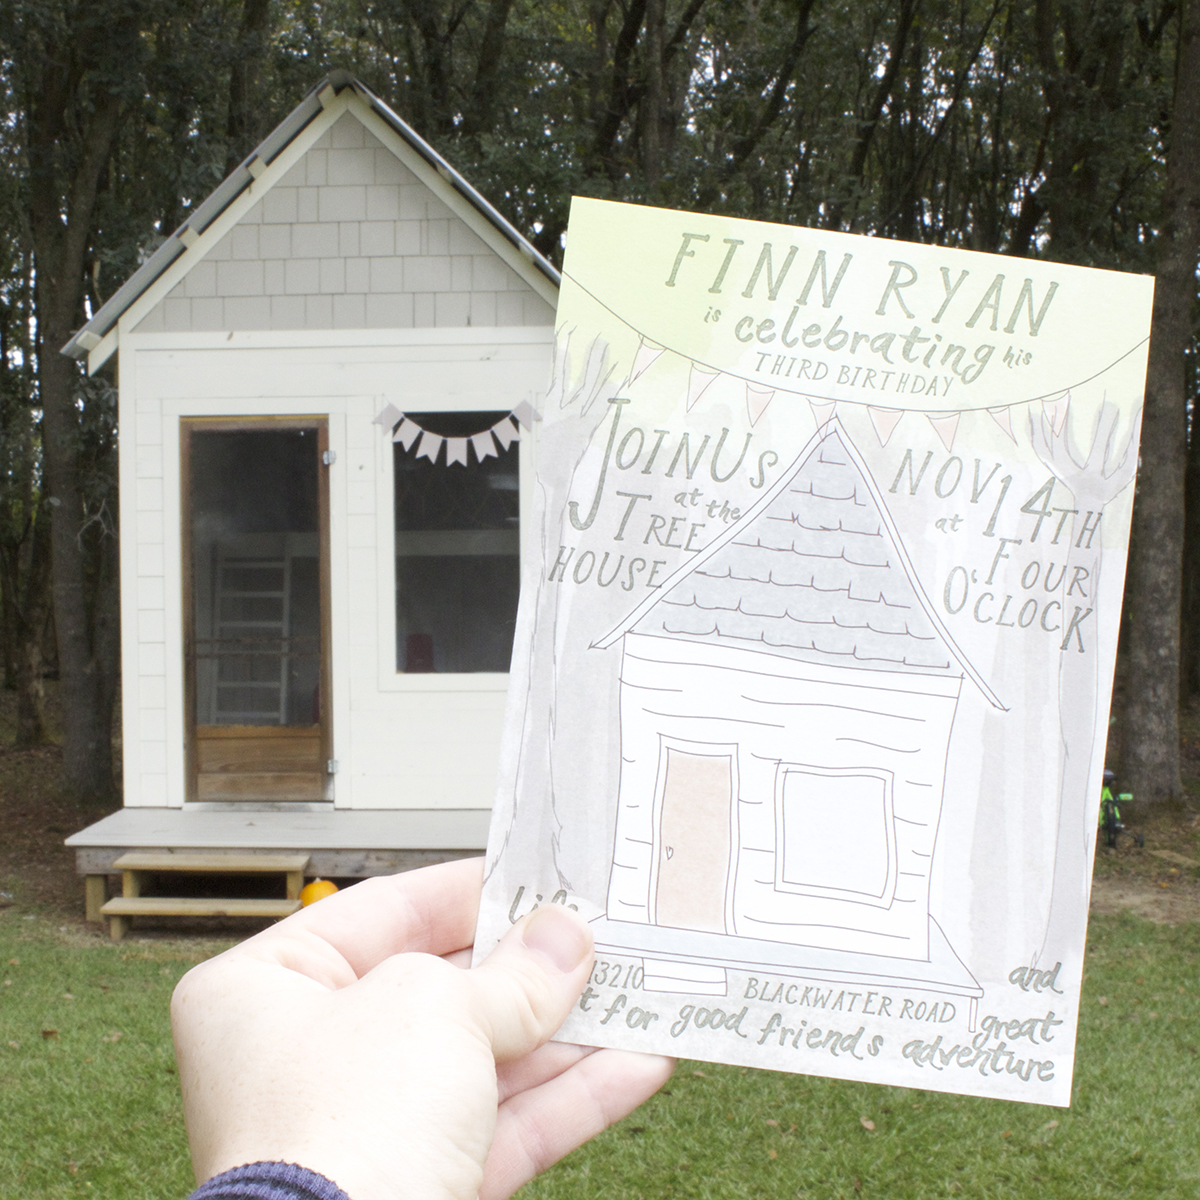 FINN RYAN
is celebrating his
THIRD BIRTHDAY
JOIN US
at the
TREE
HOUSE
NOV 14TH
at FOUR
O'CLOCK
Life
13210 BLACKWATER ROAD
for good friends and great adventure